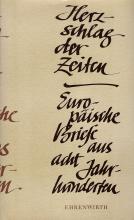 Herz-
schlag
der
Zeiten
Euro-
päische
Briefe
aus
acht Jahr-
hunderten
EHRENWIRTH